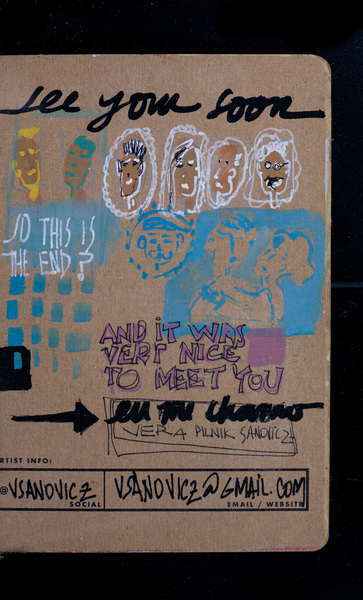 see your soon
SO THIS IS
THE END?
AND IT WAS
VERY NICE
TO MEET YOU
eu me chamo
VERA PILNIK SANOVICZ
RTIST INFO:
@VSANOVICZ
SOCIAL
VSANOVICZ@GMAIL.COM
EMAIL / WEBSITE